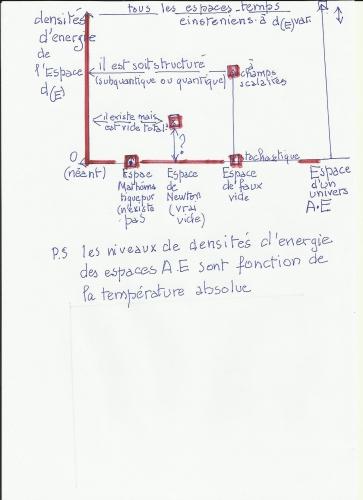 tous les espaces-temps
einsteniens à d(E) var.
densités
d'energie
de
l'Espace
d(E)
il est soit structuré
(subquantique ou quantique)
à
champs
scalaires
il existe mais
est vide total?
?
0
(néant)
stochastique
Espace
Mathéma
tique pur
(n'existe
pas
Espace
de
Newton
(vrai
vide)
Espace
de faux
vide
Espace
d'un
univers
A.E
P.S les niveaux de densités d'energie
des espaces A.E sont fonction de
la température absolue